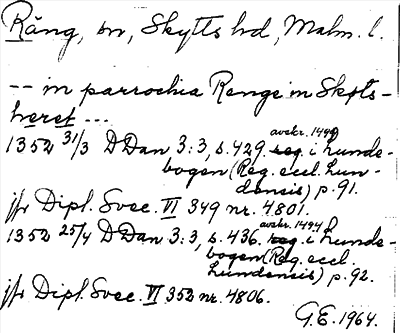 Räng, sn, Skytts hd, Malm. l.
-- in parrochia Renge in Skøts-
heret ---
1352 31/3 DDan 3:3, s. 429. avskr. 1494 i Lunde-
bogen (Reg. eccl. Lun-
densis) p. 91.
jfr Dipl. Svec. VI 349 nr. 4801.
1352 25/4 DDan 3:3, s. 436. avskr. 1494 i Lunde-
bogen (Reg. eccl.
Lundensis) p. 92.
jfr Dipl. Svec. VI 352 nr. 4806.
G.E. 1964.